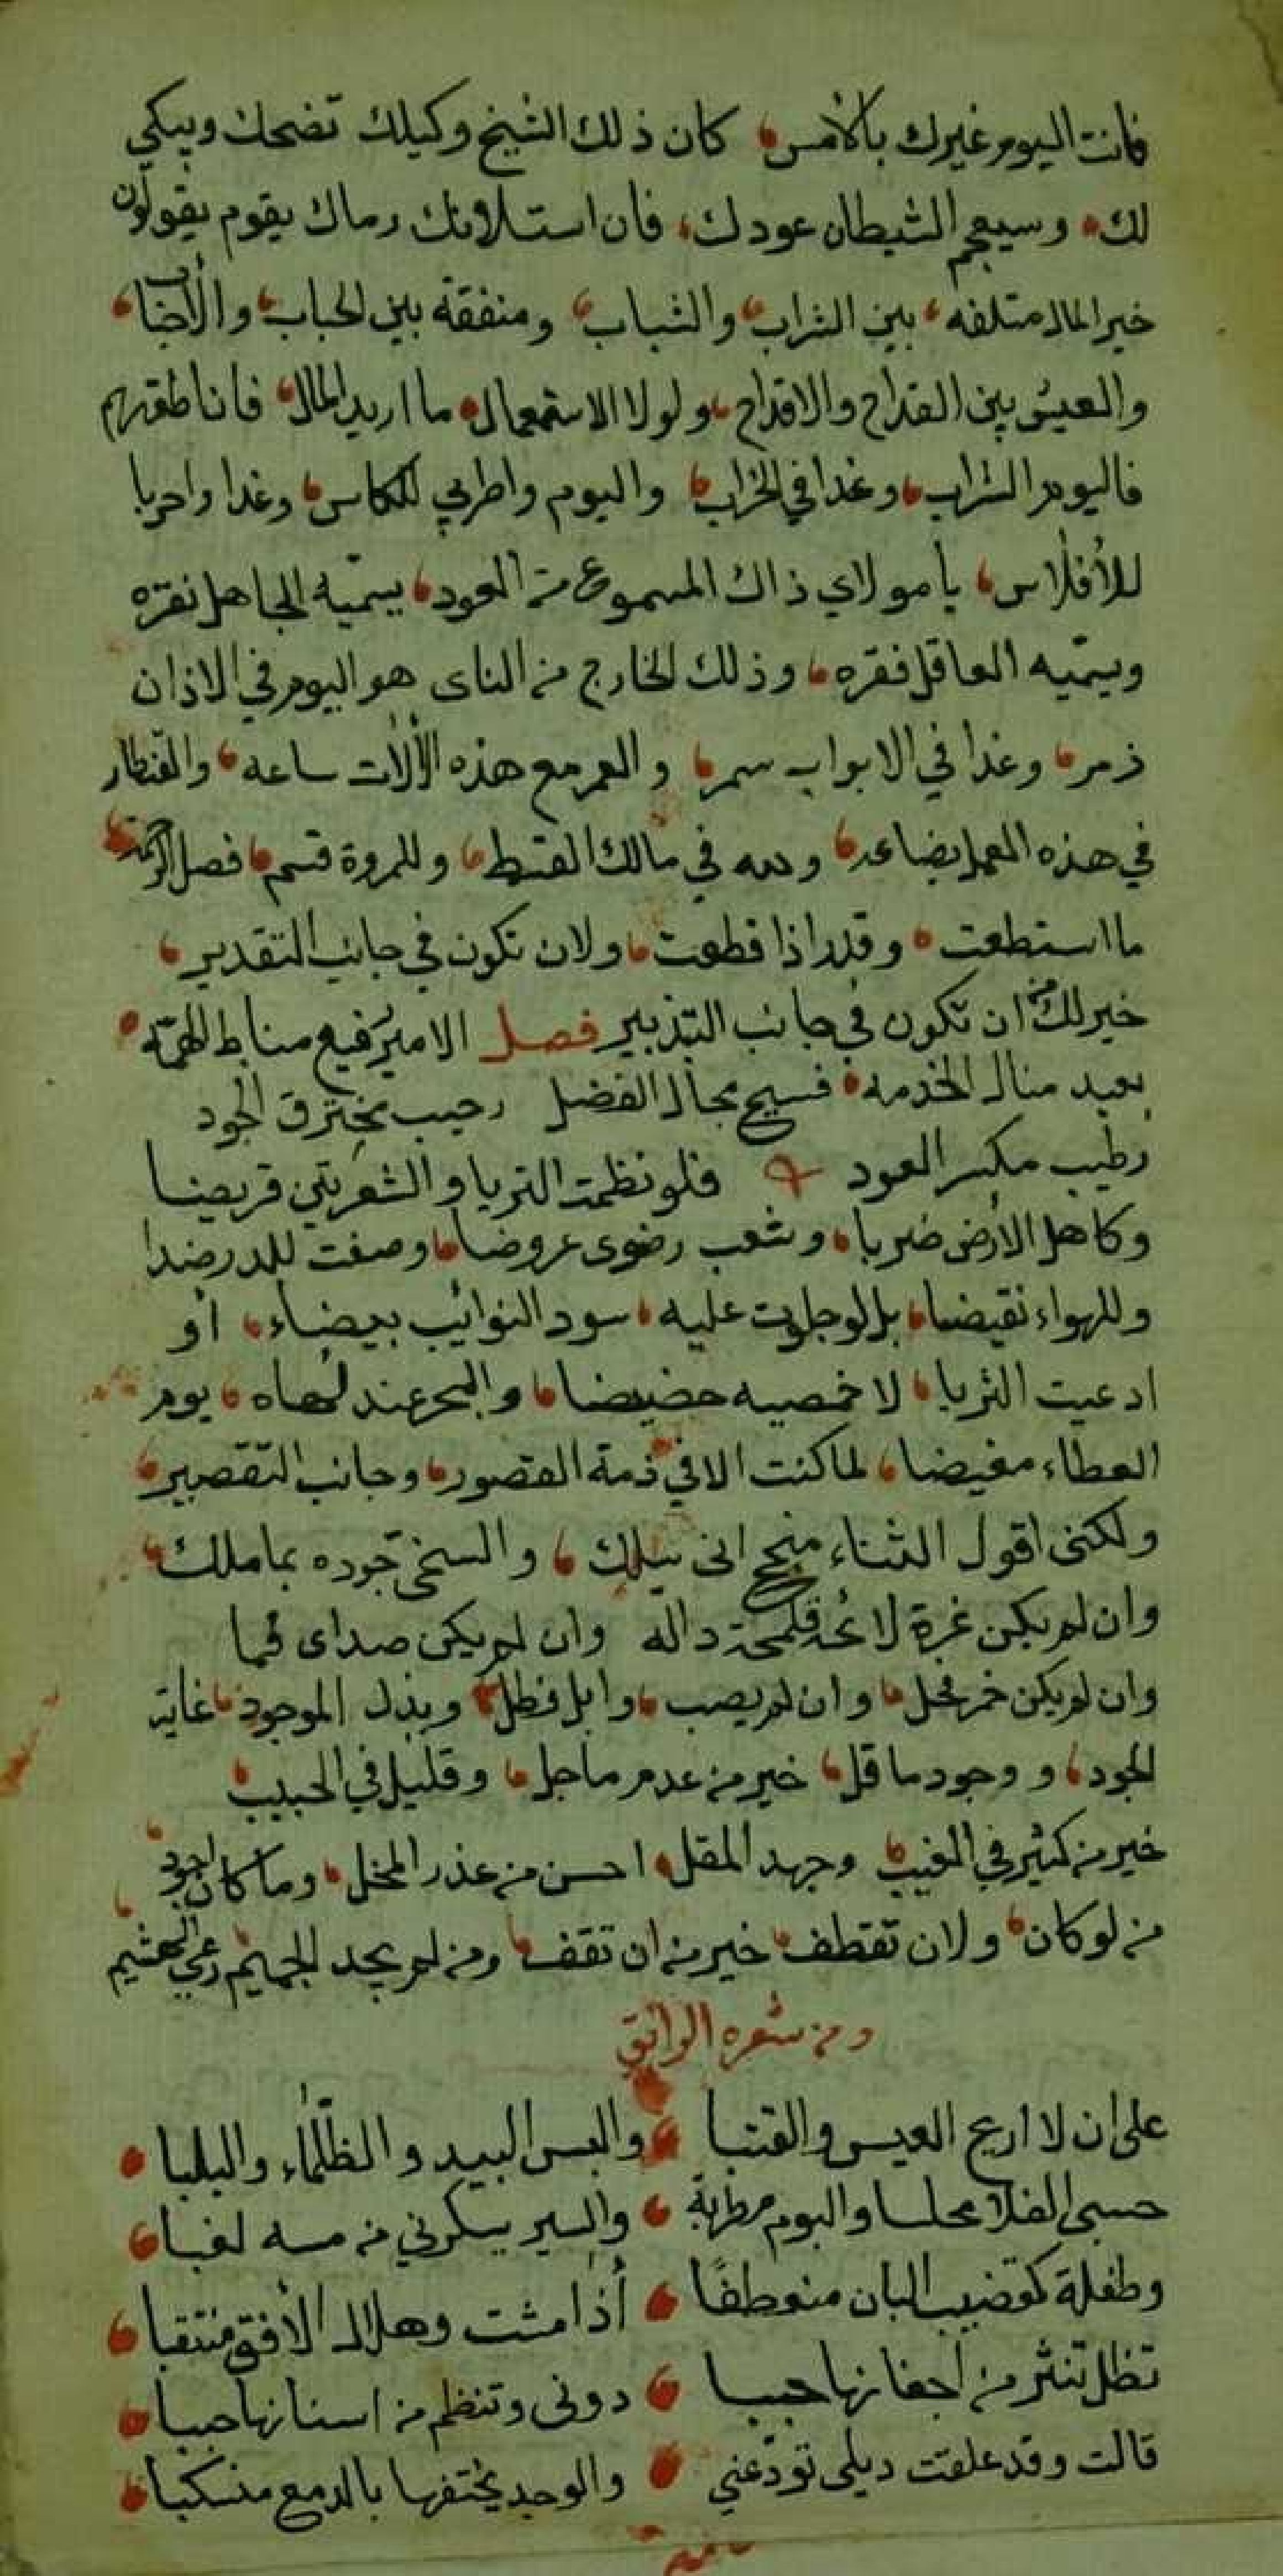 فانت اليوم غيرك بالأمس كان ذلك الشيخ وكيلك تضحك ويبكي
لك وسيعجم الشيطان عودك فان استلانك رماك بقوم يقولون
خير المال متلفه بين الشراب والشباب ومنفقة بين الحباب والأحباب
والعيش بين القداح والاقداح ولولا الاستعمال ما اريد المال فان اطعتهم
فاليوم الشراب وغدا في الخراب واليوم واطربي للكاس وغدا واحربا
للأفلاس يا مولاي ذاك المسموع من العود يسميه الجاهل نقره
ويسميه العاقل فقره وذلك الخارج من الناى هو اليوم في الاذان
زمر وغدا في الابواب سمر والعمر مع هذه الألات ساعه والقنطار
في هذه العمل بضاعه ولله في مالك القسط وللمروة قسم فصل الرحمة
ما استطعت وقدر اذا قطعت ولان تكون في جانب التقدير
خير لك من ان تكون في جانب التبذير فصل الامير رفيع مناط الهمة
بعيد منال الخدمه فسيح مجال الفضل رحيب مخترق الجود
رطيب مكسر العود فلو نظمت الثريا والشعريتين قريضا
وكاهل الأرض ضربا وشعب رضوى عروضا وصفت للدر ضدا
وللهواء نقيضا بل لو جلوت عليه سود النوائب بيضاء أو
ادعيت الثريا لا خمصيه حضيضا والبحر عند لهاه يوم
العطاء مغيضا لما كنت الا في ذمة القصور وجانب التقصير
ولكنى اقول الثناء منجح انى سلك والسخي جوده بما ملك
وان لم يكن غرة لائحة فلمحة داله وان لم يكن صداى فما
وان لم يكن خمر فخل وان لم يصب وابل فطل وبذل الموجود غاية
الجود ووجود ما قل خير من عدم ما جل وقليل في الجيب
خير من كثير في الغيب وجهد المقل احسن من عذر المخل وما كان اجود
من لو كان ولان تقطف خير من ان تقف ومن لم يجد الجميم رعى الهشيم
ومن شعره الرائق
على ان لا اريح العيس والقتبا والبس البيد والظلماء واليلبا
حسبى الفلا مجلسا والبوم مطربة والسير يسكرني من مسه لغبا
وطفلة كقضيب البان منعطفًا اذا مشت وهلال الأفق منتقبا
تظل تنثر من اجفانها حببا دونى وتنظم من اسنانها حببا
قالت وقد علقت ذيلى تودعني والوجد يخنقها بالدمع منسكبا